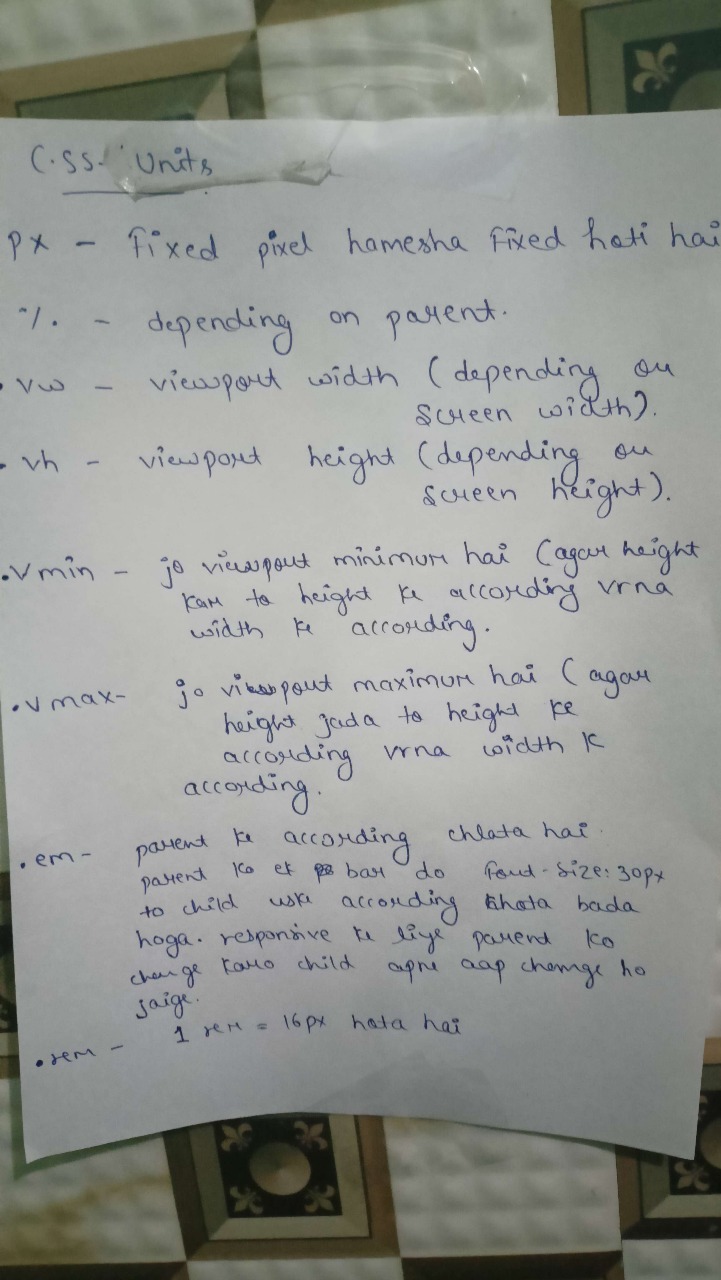 C.SS. Units
px - Fixed pixel hamesha fixed hoti hai
%. - depending on parent.
. vw - viewport width (depending on
screen width).
. vh - viewport height (depending on
screen height).
. Vmin - jo viewport minimum hai (agar height
kam to height ke according vrna
width ke according.
. Vmax- jo viewport maximum hai (agar
height jada to height ke
according vrna width k
according.
. em - parent ke according chlata hai.
parent ko ek bar do font-size: 30px
to child uske according chota bada
hoga. responsive ke liye parent ko
change karo child apne aap change ho
jaige.
. rem - 1 rem = 16px hota hai